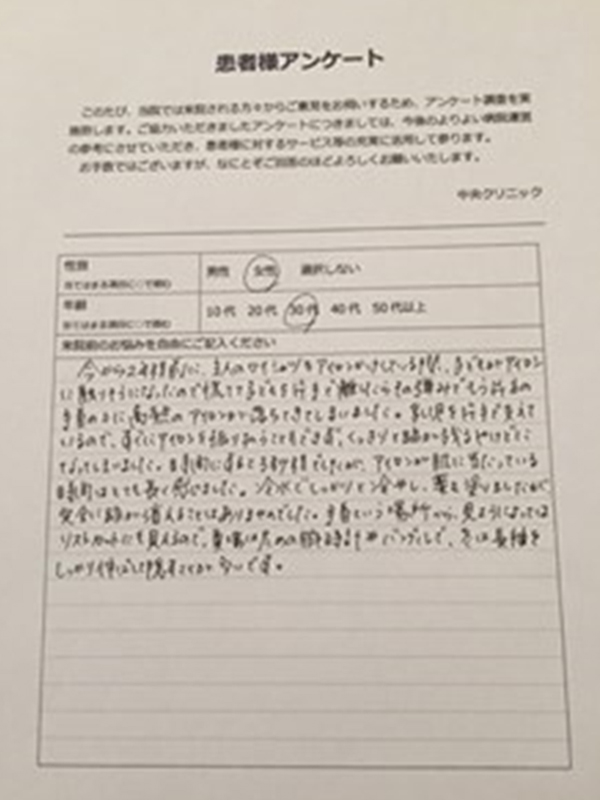 患者様アンケート
このたび、当院では来院される方々からご意見をお伺いするため、アンケート調査を実
施致します。ご協力いただきましたアンケートにつきましては、今後のよりよい病院運営
の参考にさせていただき、患者様に対するサービス等の充実に活用して参ります。
お手数ではございますが、なにとぞご回答のほどよろしくお願いいたします。
中央クリニック
性別
当てはまる項目に○で囲む
男性 女性 選択しない
年齢
当てはまる項目に○で囲む
10代 20代 30代 40代 50代以上
来院前のお悩みを自由にご記入ください
今から2年程前に、主人のワイシャツをアイロンがけしている時、子どもがアイロン
に触りそうになったので慌てて子どもを片手で離したらその弾みでもう片方の
手首の上に高熱のアイロンが落ちてきてしまいました。乳児を片手で支えて
いるので、すぐにアイロンを振り払うこともできず、くっきりと跡が残るやけどに
なってしまいました。時間にすると3秒程でしたが、アイロンが肌に当たっている
時間はとても長く感じました。冷水でしっかりと冷やし、薬も塗りましたが、
完全に跡が消えることはありませんでした。手首という場所から、見ようによっては
リストカットにも見えるので、夏場は太めの腕時計やバングルで、冬は長袖を
しっかり伸ばして隠すことが多いです。